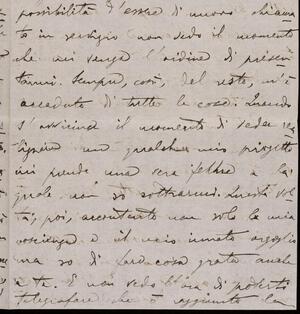 possibilità d'essere di nuovo chiama-
to in servizio non vedo il momento
che mi venga l'ordine di presen-
tarmi. Sempre, così, del resto, m'è
accaduto di tutte le cose. Quando
s'avvicina il momento di veder re-
alizzato un qualche mio progetto
mi prende una vera febbre a la
quale non so sottrarmi. Questa vol-
ta, poi, accontento non solo la mia
coscienza e il mio innato orgoglio
ma so di far cosa grata anche
a te. E non vedo l'ora di poterti
telegrafare che ho raggiunto la